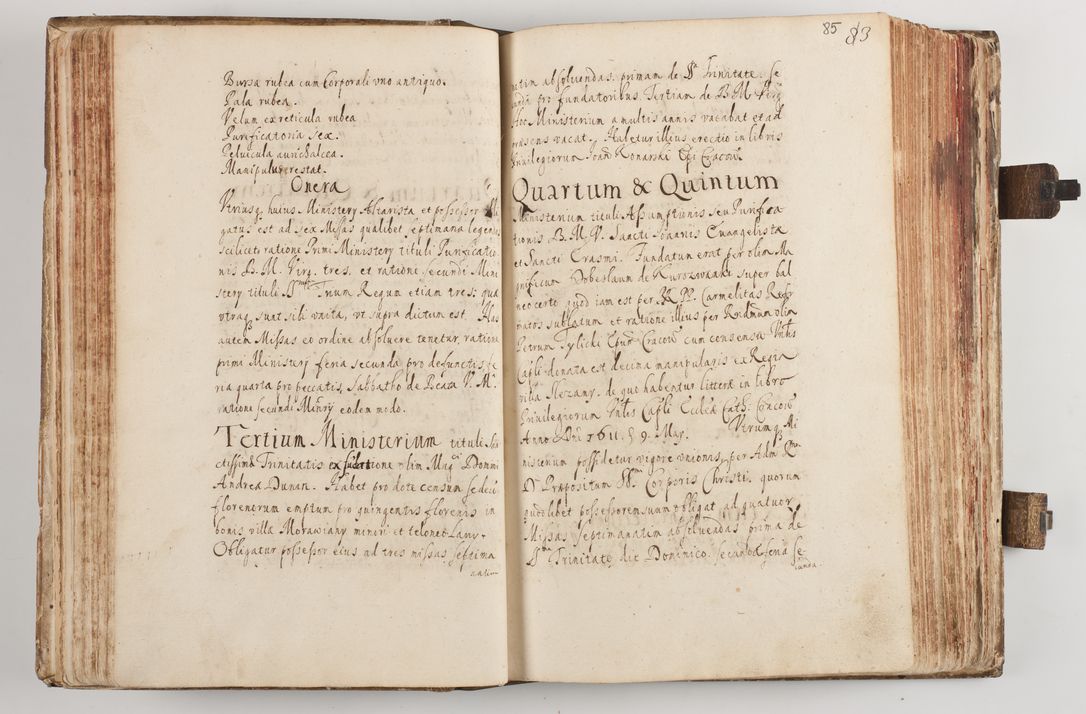 Bursa rubea cum Corporali vno antiquo.
Pala rubea.
Velum ex reticula rubea
Purificatoria sex.
Peluicula aurichalcea.
Manipulus restat.
Onera
Vtriusq huius Ministerij Altarista et possessor
gatus est ad sex Missas qualibet septimana legendas
scilicet ratione Primi Ministerij tituli Purificatio
nis B. M. Virg. tres, et ratione secundi Mini
sterij tituli Trium Regum etiam tres: quæ
vtraq sunt sibi vnita, vt supra dictum est. Has
autem Missas eo ordine absoluere tenetur, ratione
primi Ministerij feria secunda pro defunctis, fe
ria quarta pro peccatis, Sabbatho de Beata V. M.
ratione secundi Minrij eodem modo.
Tertium Ministerium tituli San
ctissimæ Trinitatis ex fundatione olim Magci Domini
Andreæ Dunan. Habet pro dote censum sedeci
florenorum emptum pro quingentis florenis in
bonis villæ Morawiany minori et
Obligatur possessor eius ad tres missas septima
natim
85 83
natim absoluendas, primam de S. Trinitate, se
cundam pro fundatoribus, Tertiam de B. M. Virg
Hoc Ministerium a multis annis vacabat et ad
præsens vacat. Habetur illius erectio in libris
Priuilegiorum Joan Konarski Epi Cracou
Quartum & Quintum
Ministerium tituli Assumptionis seu Purifica
tionis B. M. V. Sancti Joannis Euangelistæ
et Sancti Erasmi. Fundatum erat per olim Ma
gnificum Dobeslaum de Kurozwanki super bal
neo certo quod iam est per RR. PP. Carmelitas Refor
matos sublatum et ratione illius per Rndmum olim
Petrum Tylicki Epum Cracou cum consensu Vnlis
Capli donata est decima manipularis ex Regia
villa de quo habentur litteræ in libro
Priuilegiorum Vnlis Capli Ecclæ Cath: Cracou
Anno Dni 1611. 9. May. Vtrumq Mi
nisterium possidetur vigore vnionis per Adm Rm
D. Præpositum SSmi Corporis Christi. quorum
quodlibet possessorem suum obligat ad quatuor
Missas septimanatim absoluendas prima de
S. Trinitate die Dominico. secunda feria se
cunda